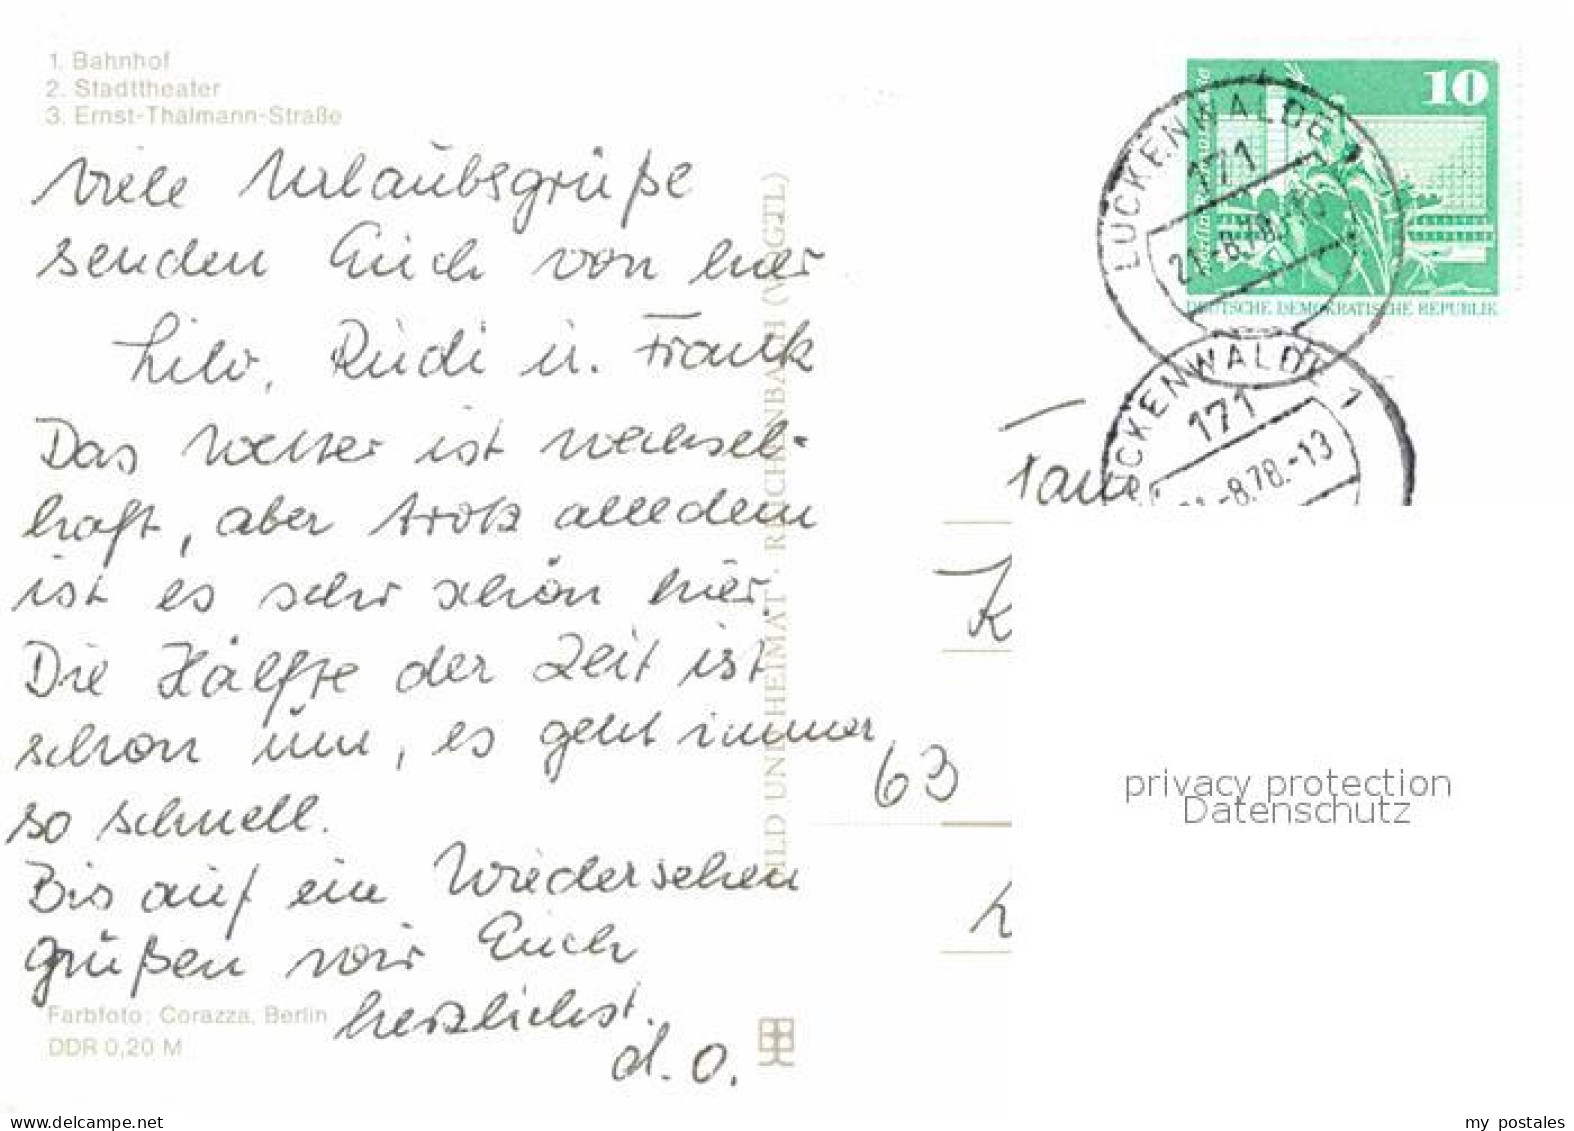 1. Bahnhof
2. Stadttheater
3. Ernst-Thälmann-Straße
Viele Urlaubsgrüße
senden Euch von hier
Lilo, Rudi u. Frank
Das Wetter ist wechsel-
haft, aber trotz alledem
ist es sehr schön hier.
Die Hälfte der Zeit ist
schon um, es geht immer
so schnell.
Bis auf ein Wiedersehen
grüßen wir Euch
herzlichst.
d. O.
Farbfoto: Corazza, Berlin
DDR 0,20 M
BILD UND HEIMAT · REICHENBACH (VOGTL)
10
DEUTSCHE DEMOKRATISCHE REPUBLIK
LUCKENWALDE
171
21.-8.78.-13
LUCKENWALDE 1
171
21.-8.78.-13
Fam.
K
63
L
privacy protection
Datenschutz
www.delcampe.net
my_postales